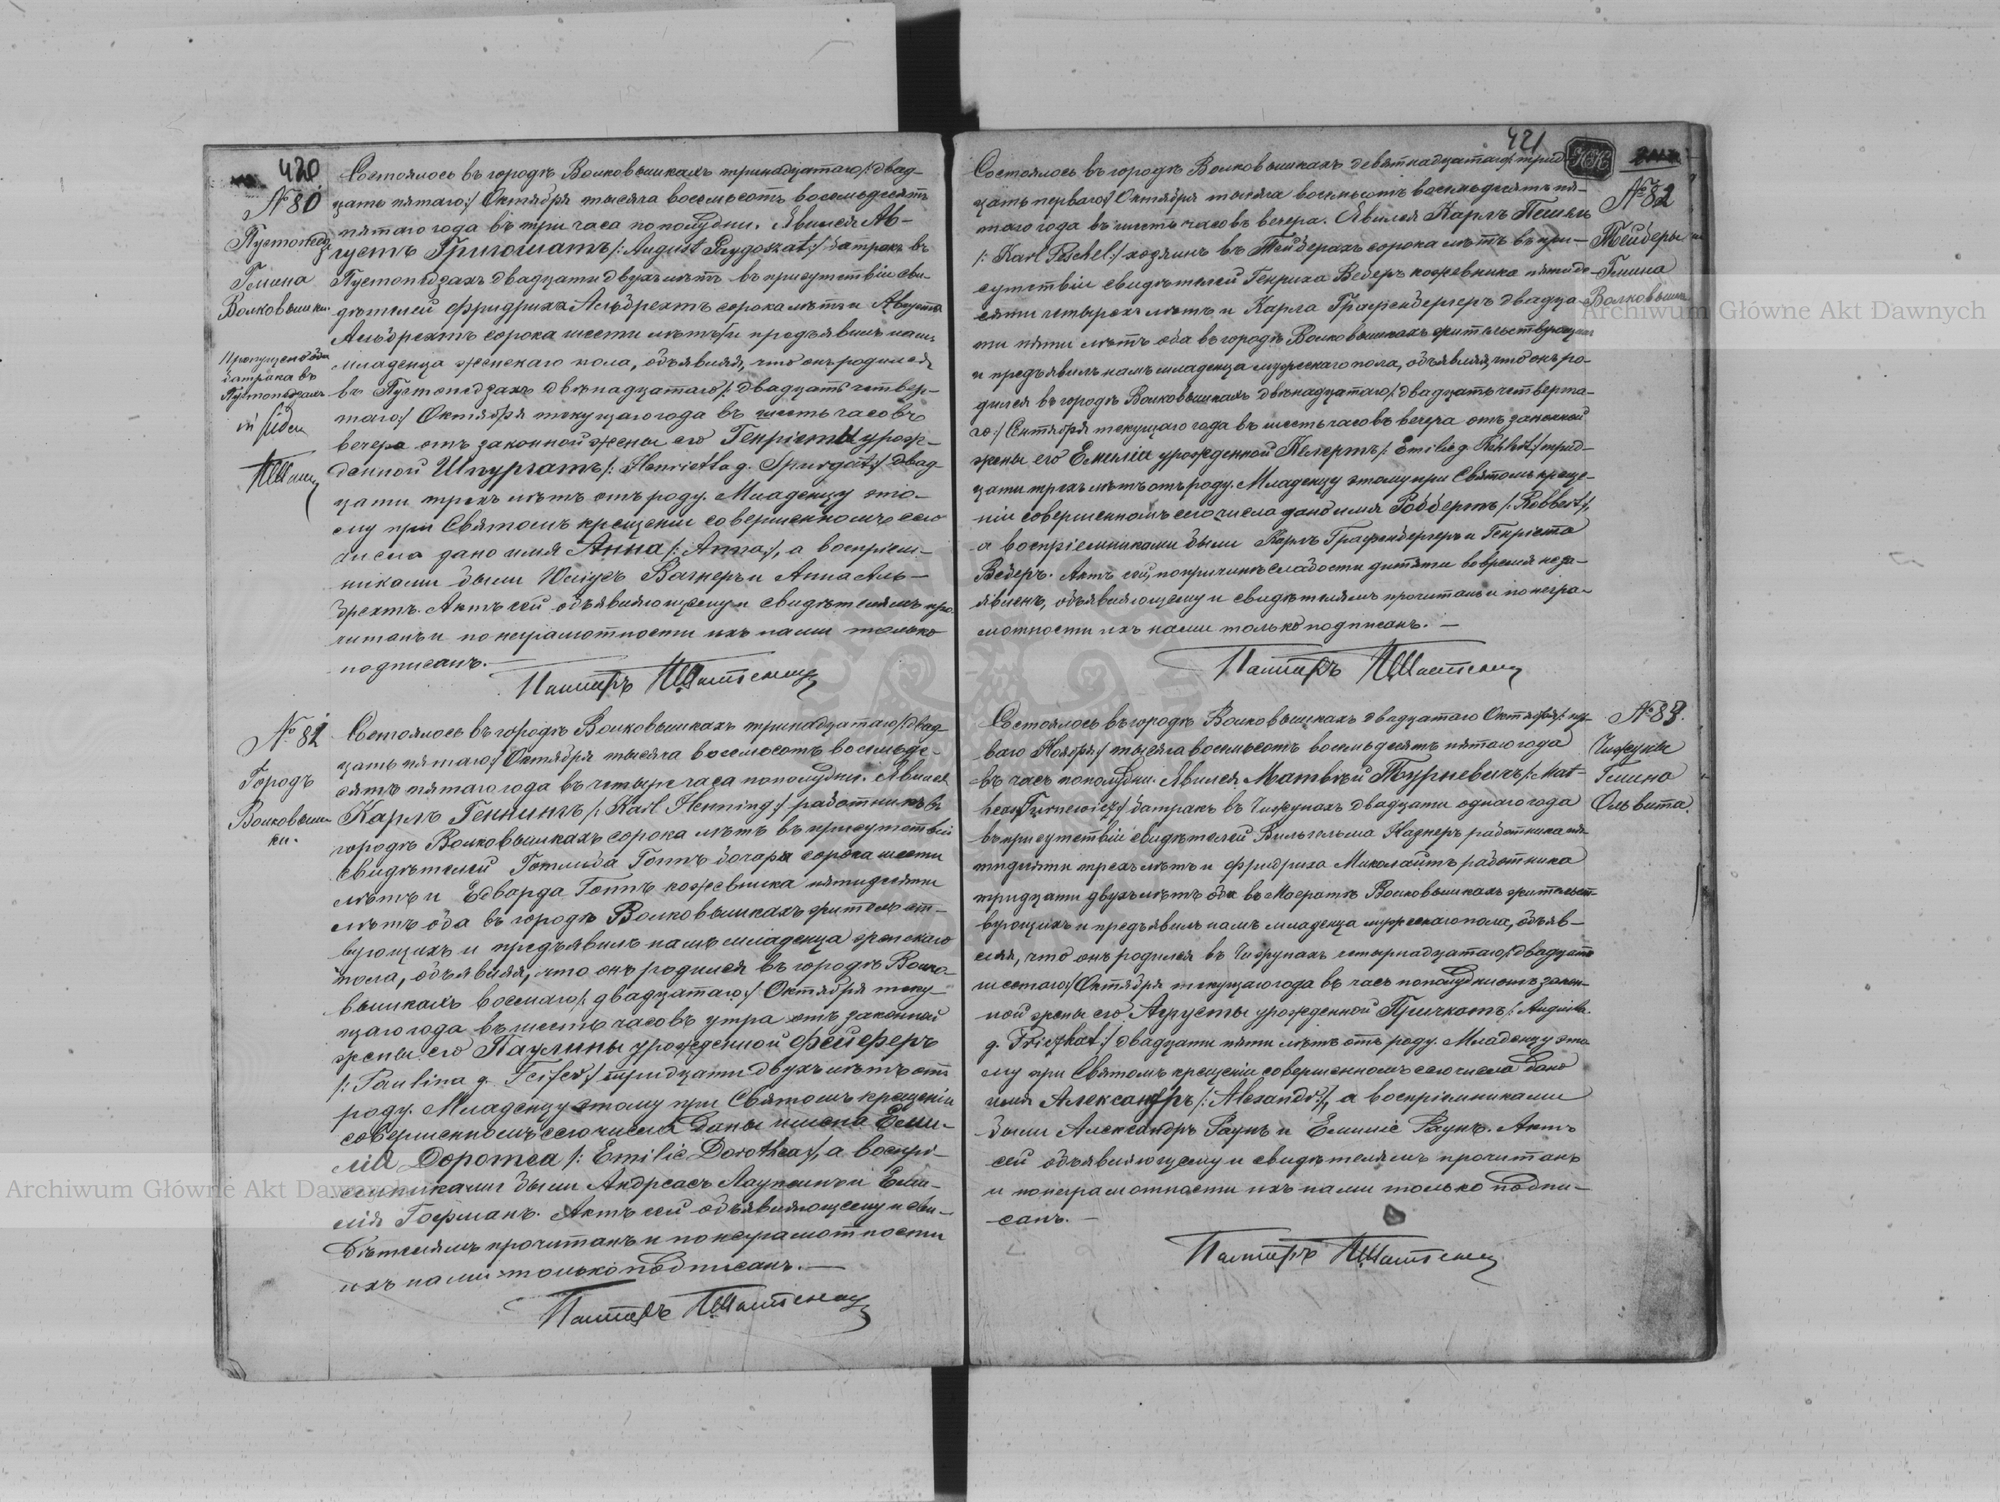 420
№ 80
Пустопедзи
Гмина
Волковышки
батрака въ
Пустопедзахъ
Состоялось въ городѣ Волковышкахъ тринадцатаго /: двад-
цать пятаго :/ Октября тысяча восемьсотъ восемьдесятъ
пятаго года въ три часа пополудни. Явился Ав-
густъ Григошатъ /: August Grygoszat :/ батракъ въ
Пустопедзахъ двадцати двухъ лѣтъ въ присутствіи сви-
дѣтелей Фридриха Альбрехтъ сорока лѣтъ и Августа
Альбрехтъ сорока шести лѣтъ и предъявилъ намъ
младенца женскаго пола, объявляя, что онъ родился
въ Пустопедзахъ двѣнадцатаго /: двадцать четвер-
таго :/ Октября текущаго года въ шесть часовъ
вечера отъ законной жены его Генріеты урож-
денной Шпургатъ /: Henrietta g. Spurgat :/ двад-
цати трехъ лѣтъ отъ роду. Младенцу это-
му при Святомъ крещеніи совершенномъ сего
числа дано имя Анна /: Anna :/, а воспріем-
никами были Юліусъ Вагнеръ и Анна Аль-
брехтъ. Актъ сей объявляющему и свидѣтелямъ про-
читанъ и по неграмотности ихъ нами только
подписанъ. —
Пасторъ
№ 81
Городъ
Волковыш-
ки.
Состоялось въ городѣ Волковышкахъ тринадцатаго /: двад-
цать пятаго :/ Октября тысяча восемьсотъ восемьде-
сятъ пятаго года въ четыре часа пополудни. Явился
Карлъ Геннингъ /: Karl Henning :/ работникъ въ
городѣ Волковышкахъ сорока лѣтъ въ присутствіи
свидѣтелей Готлиба Гоппъ бочара сорока шести
лѣтъ и Едварда Гоппъ кожевника пятидесяти
лѣтъ оба въ городѣ Волковышкахъ жительст-
вующихъ и предъявилъ намъ младенца женскаго
пола, объявляя, что онъ родился въ городѣ Волко-
вышкахъ восьмаго /: двадцатаго :/ Октября теку-
щаго года въ шесть часовъ утра отъ законной
жены его Паулины урожденной Фейферъ
/: Paulina g. Feifer :/ тридцати двухъ лѣтъ отъ
роду. Младенцу этому при Святомъ крещеніи
совершенномъ сего числа даны имена Еми-
лія Доротеа /: Emilie Dorothea :/, а воспрі-
емниками были Андреасъ и Еми-
лія Гофманъ. Актъ сей объявляющему и сви-
дѣтелямъ прочитанъ и по неграмотности
ихъ нами только подписанъ. —
Пасторъ
421
№ 82
Тейберы
Гмина
Волковышки
Состоялось въ городѣ Волковышкахъ девятнадцатаго /: трид-
цать перваго :/ Октября тысяча восемьсотъ восемьдесятъ пя-
таго года въ шесть часовъ вечера. Явился Карлъ Пешель
/: Karl Peschel :/ хозяинъ въ Тейберахъ сорока лѣтъ въ при-
сутствіи свидѣтелей Генриха Веберъ кожевника пятиде-
сяти четырехъ лѣтъ и Карла Графенбергеръ двадца-
ти пяти лѣтъ оба въ городѣ Волковышкахъ жительствующихъ
и предъявилъ намъ младенца мужескаго пола, объявляя, что онъ ро-
дился въ городѣ Волковышкахъ двѣнадцатаго /: двадцать четверта-
го :/ Сентября текущаго года въ шесть часовъ вечера отъ законной
жены его Емиліи урожденной Пелертъ /: Emilie g. :/ трид-
цати трехъ лѣтъ отъ роду. Младенцу этому при Святомъ креще-
ніи совершенномъ сего числа дано имя Робертъ /: Robbert :/,
а воспріемниками были Карлъ Графенбергеръ и Генріета
Веберъ. Актъ сей, по причинѣ слабости дитяти во время неза-
явленъ, объявляющему и свидѣтелямъ прочитанъ и по негра-
мотности ихъ нами только подписанъ. —
Пасторъ
№ 83.
Чижуны
Гмина
Ольвита.
Состоялось въ городѣ Волковышкахъ двадцатаго Октября /: пер-
ваго Ноября :/ тысяча восемьсотъ восемьдесятъ пятаго года
въ часъ пополудни. Явился Матвѣй Турневичъ /: Mat-
heas Turnewicz :/ батракъ въ Чижунахъ двадцати одного года
въ присутствіи свидѣтелей Вильгельма работника пя-
тидесяти трехъ лѣтъ и Фридриха Миколайтъ работника
тридцати двухъ лѣтъ оба въ Волковышкахъ жительст-
вующихъ и предъявилъ намъ младенца мужескаго пола, объяв-
ляя, что онъ родился въ Чижунахъ четырнадцатаго /: двадцать
шестаго :/ Октября текущаго года въ часъ пополудни отъ закон-
ной жены его Аугусты урожденной Причкатъ /: Augusta
g. Priczkat :/ двадцати пяти лѣтъ отъ роду. Младенцу это-
му при Святомъ крещеніи совершенномъ сего числа дано
имя Александръ /: Alexandr :/, а воспріемниками
были Александръ Раунъ и Емилія Раунъ. Актъ
сей объявляющему и свидѣтелямъ прочитанъ
и по неграмотности ихъ нами только подпи-
санъ. —
Пасторъ
Archiwum Główne Akt Dawnych
Archiwum Główne Akt Dawnych